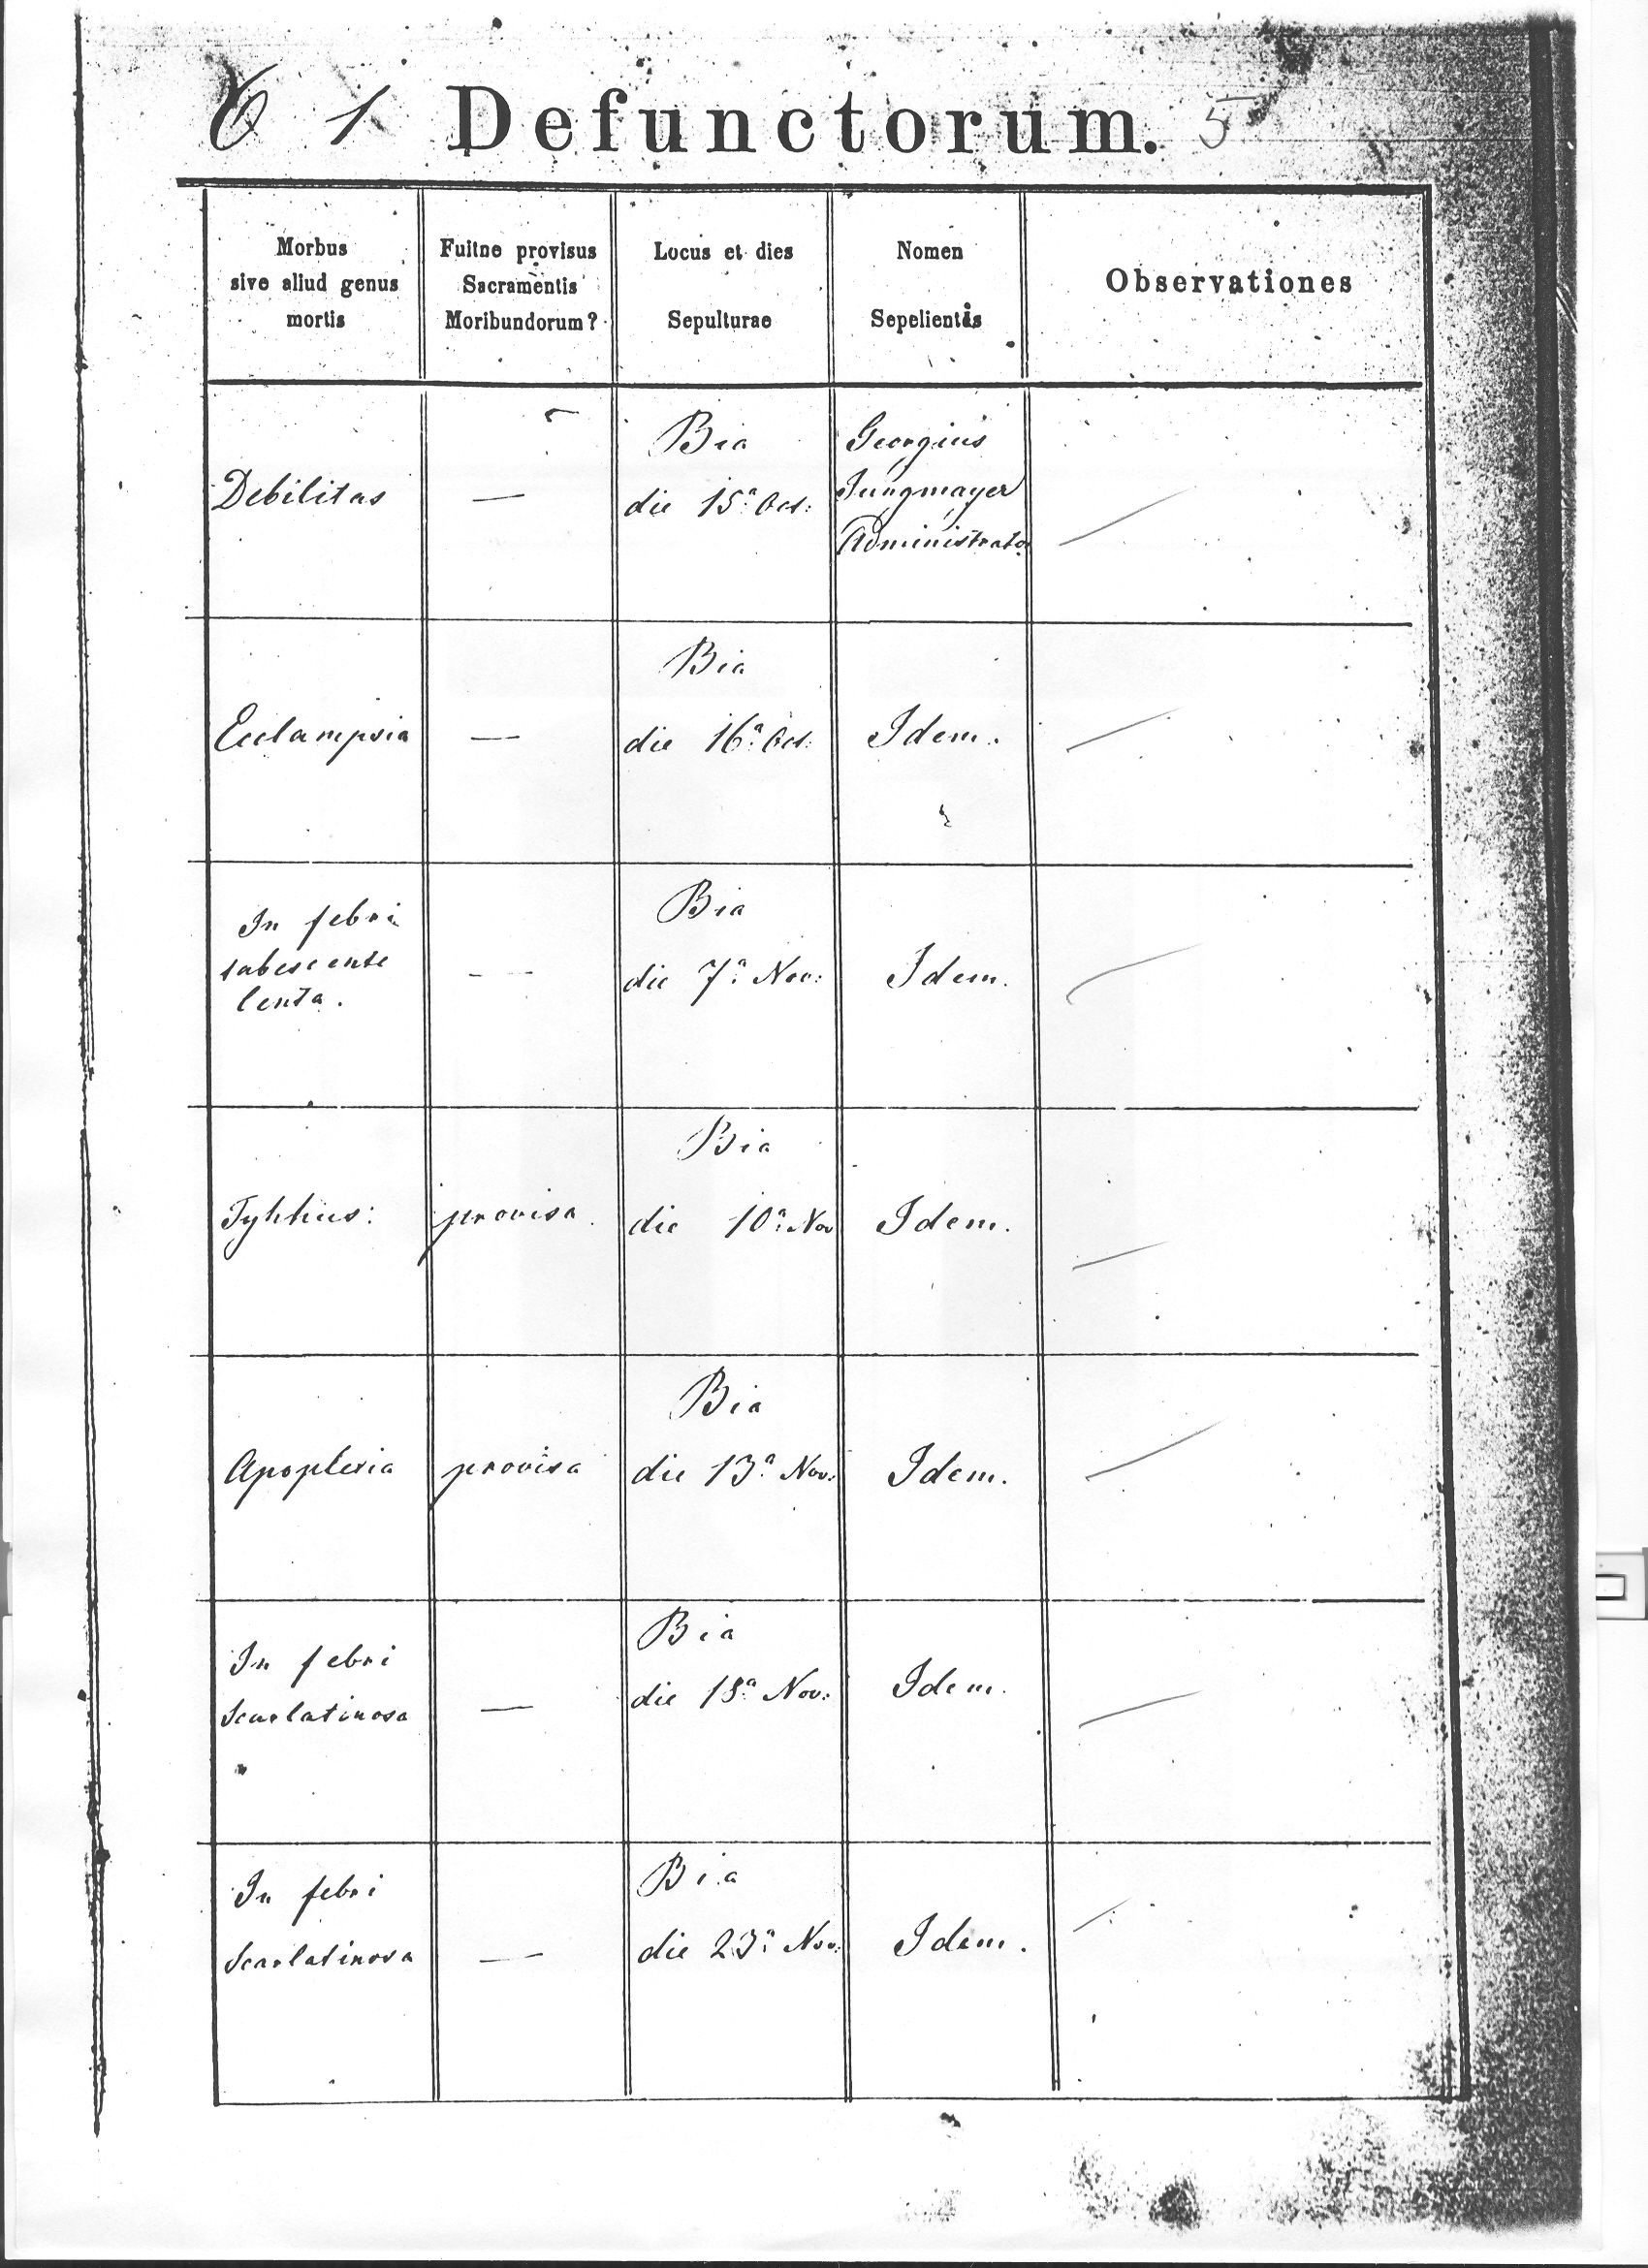 1 Defunctorum. 5
Morbus
sive aliud genus
mortis
Fuitne provisus
Sacramentis
Moribundorum?
Locus et dies
Sepulturae
Nomen
Sepelientis
Observationes
Debilitas
—
Bia
die 15ª Oct:
Georgius
Jungmayer
Administrator
Ecclampsia
—
Bia
die 16ª Oct:
Idem.
In febri
tabescente
lenta.
—
Bia
die 7ª Nov:
Idem.
Tyhhus:
provisa.
Bia
die 10ª Nov
Idem.
Apoplexia
provisa
Bia
die 13ª Nov:
Idem.
In febri
Scarlatinosa
—
Bia
die 18ª Nov:
Idem.
In febri
Scarlatinosa
—
Bia
die 23ª Nov:
Idem.